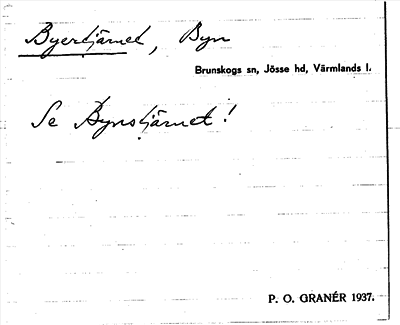 Byertjärnet, Byn
Brunskogs sn, Jösse hd, Värmlands l.
Se Bynstjärnet!
P. O. GRANÉR 1937.